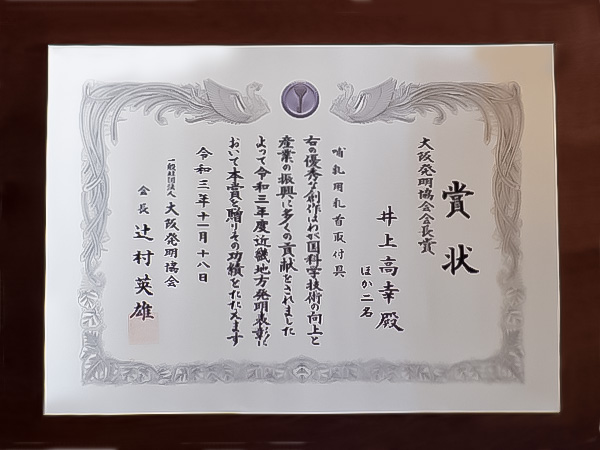 賞状
大阪発明協会会長賞
井上高幸殿
ほか二名
哺乳用乳首取付具
右の優秀な創作はわが国科学技術の向上と
産業の振興に多くの貢献をされました
よって令和三年度近畿地方発明表彰に
おいて本賞を贈りその功績をたたえます
令和三年十一月十八日
一般社団法人 大阪発明協会
会長 辻村英雄